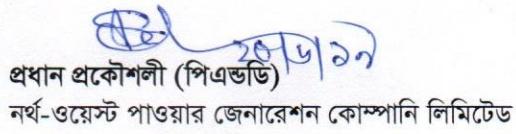 ২০/৬/১৭
প্রধান প্রকৌশলী (পিএন্ডডি)
নর্থ-ওয়েস্ট পাওয়ার জেনারেশন কোম্পানি লিমিটেড